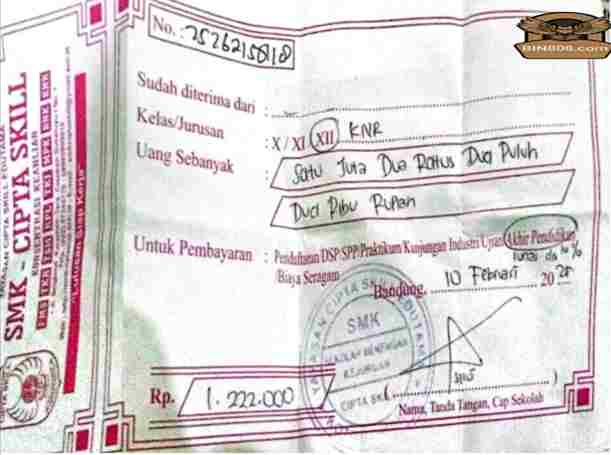 BIN808.com
YAYASAN CIPTA SKILL EDUTAMA
SMK - CIPTA SKILL
KONSENTRASI KEAHLIAN
"Lulusan Siap Kerja"
No. : 2526215818
Sudah diterima dari :
Kelas/Jurusan : X / XI XII KNR
Uang Sebanyak : Satu Juta Dua Ratus Dua Puluh
Dua Ribu Rupiah
Untuk Pembayaran : Pendaftaran DSP/SPP/Praktikum Kunjungan Industri Ujian Akhir Pendidikan
/Biaya Seragam
Bandung, 10 Februari 20
YAYASAN CIPTA SKILL EDUTAMA
SMK
SEKOLAH MENENGAH
KEJURUAN
CIPTA SK
Rp. 1.222.000
( )
Nama, Tanda Tangan, Cap Sekolah